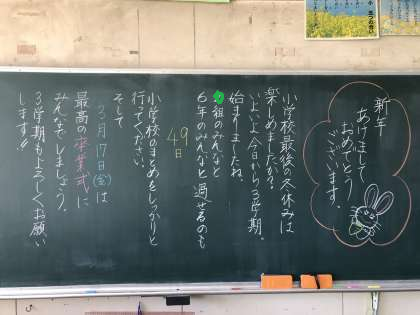 新年
あけまして
おめでとう
ございます。
小学校最後の冬休みは
楽しめましたか？
いよいよ今日から3学期。
始まりましたね。
組のみんなと
6年のみんなと過せるのも
49日
小学校のまとめをしっかりと
行ってください。
そして
3月17日(金)は
最高の卒業式に
みんなでしましょう。
3学期もよろしくお願い
します!!